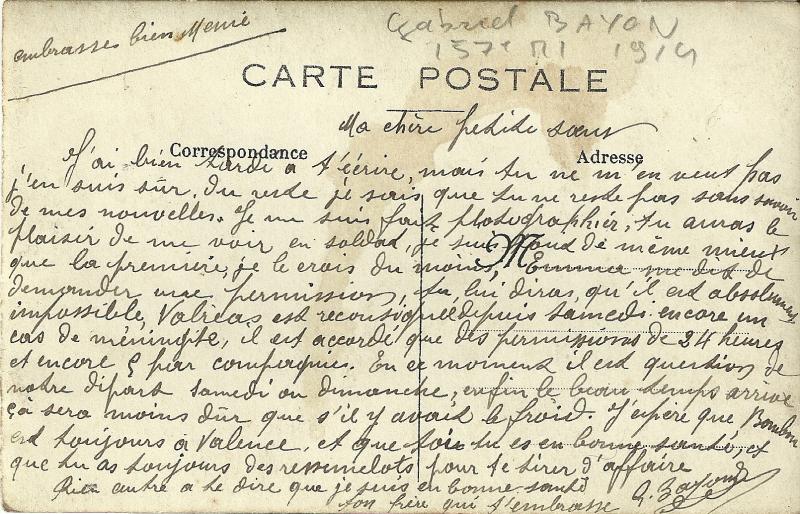 embrasses bien Mémé
Gabriel BAYON
157e RI 1914
CARTE POSTALE
Ma chère petite sœur
Correspondance
Adresse
J'ai bien tardé a t'écrire, mais tu ne m'en veut pas
j'en suis sûr, du reste je sais que tu ne reste pas sans savoir
de mes nouvelles. Je me suis fait photographier, tu auras le
plaisir de me voir en soldat, je suis quand de même mieux
M
que la première, je le crois du moins, Emma me dit de
demander une permission, tu lui diras, qu'il est absolument
impossible, Valréas est reconsigné depuis samedi encore un
cas de méningite, il est accordé que des permissions de 24 heures
et encore 5 par compagnies. En ce moment il est question de
notre départ samedi ou dimanche, enfin le beau temps arrive
çà sera moins dûr que s'il y avait le froid. J'éspère que Bombon
est toujours a Valence, et que toi tu es en bonne santé, et
que tu as toujours des ressemelots pour te tirer d'affaire
Rien autre a te dire que je suis en bonne santé
ton frère qui t'embrasse G. Bayon